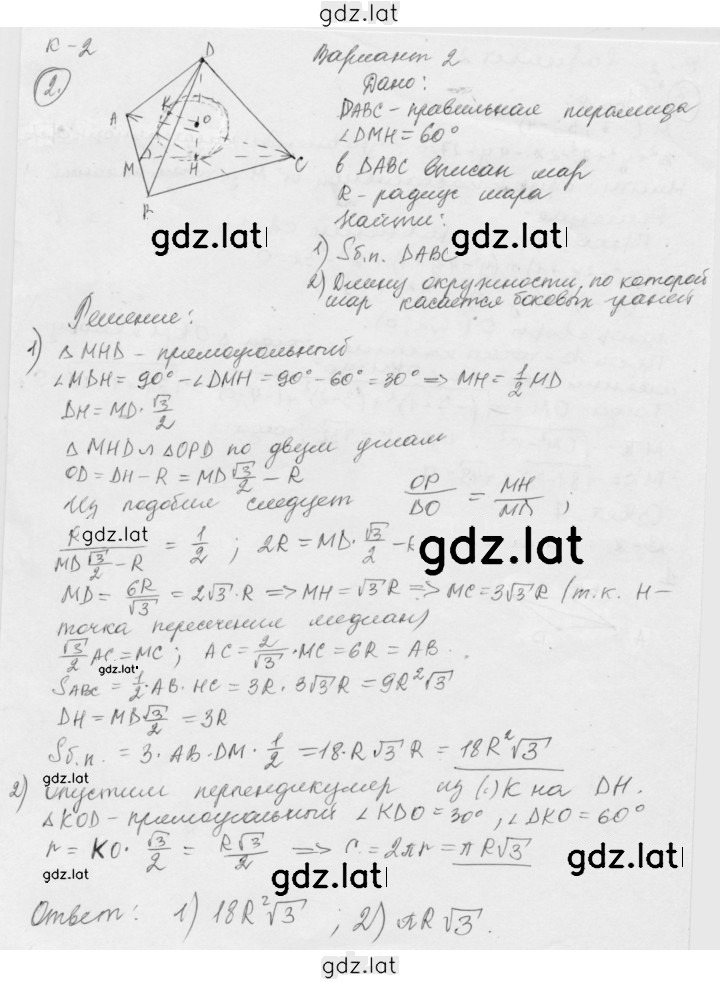 gdz.lat
К-2
Вариант 2
2.
D
Дано:
A K O
DABC - правильная пирамида
∠DMH = 60°
M H C
в DABC вписан шар
B
R - радиус шара
Найти:
gdz.lat
1) Sб.п. DABC
2) Длину окружности, по которой
шар касается боковых граней
Решение:
1) △MHD - прямоугольный
∠MDH = 90° - ∠DMH = 90° - 60° = 30° ⇒ MH = 1/2 MD
DH = MD · √3/2
△MHD ∽ △OPD по двум углам
OD = DH - R = MD √3/2 - R
Из подобия следует OP/DO = MH/MD ;
gdz.lat
R/(MD √3/2 - R) = 1/2 ; 2R = MD · √3/2 - R
gdz.lat
MD = 6R/√3 = 2√3 · R ⇒ MH = √3 R ⇒ MC = 3√3 R (т.к. H -
точка пересечения медиан)
√3/2 AC = MC ; AC = 2/√3 · MC = 6R = AB .
gdz.lat
SABC = 1/2 · AB · HC = 3R · 3√3 R = 9R²√3
DH = MD √3/2 = 3R
Sб.п. = 3 · AB · DM · 1/2 = 18 · R √3 R = 18R²√3
gdz.lat
2) Опустим перпендикуляр из (·) K на DH.
△KOD - прямоугольный ∠KDO = 30°, ∠DKO = 60°
r = KO · √3/2 = R√3/2 ⇒ C = 2πr = πR√3
gdz.lat
Ответ: 1) 18R²√3 ; 2) πR√3.
gdz.lat